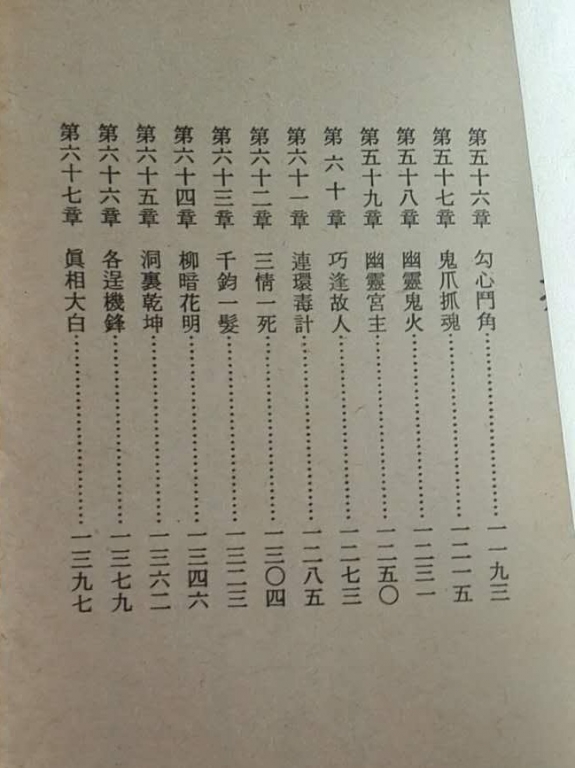 第五十六章　勾心鬥角……………………一一九三
第五十七章　鬼爪抓魂……………………一二一五
第五十八章　幽靈鬼火……………………一二三一
第五十九章　幽靈宮主……………………一二五〇
第六十章　巧逢故人……………………一二七三
第六十一章　連環毒計……………………一二八五
第六十二章　三情一死……………………一三〇四
第六十三章　千鈞一髮……………………一三二三
第六十四章　柳暗花明……………………一三四六
第六十五章　洞裏乾坤……………………一三六二
第六十六章　各逞機鋒……………………一三七九
第六十七章　眞相大白……………………一三九七